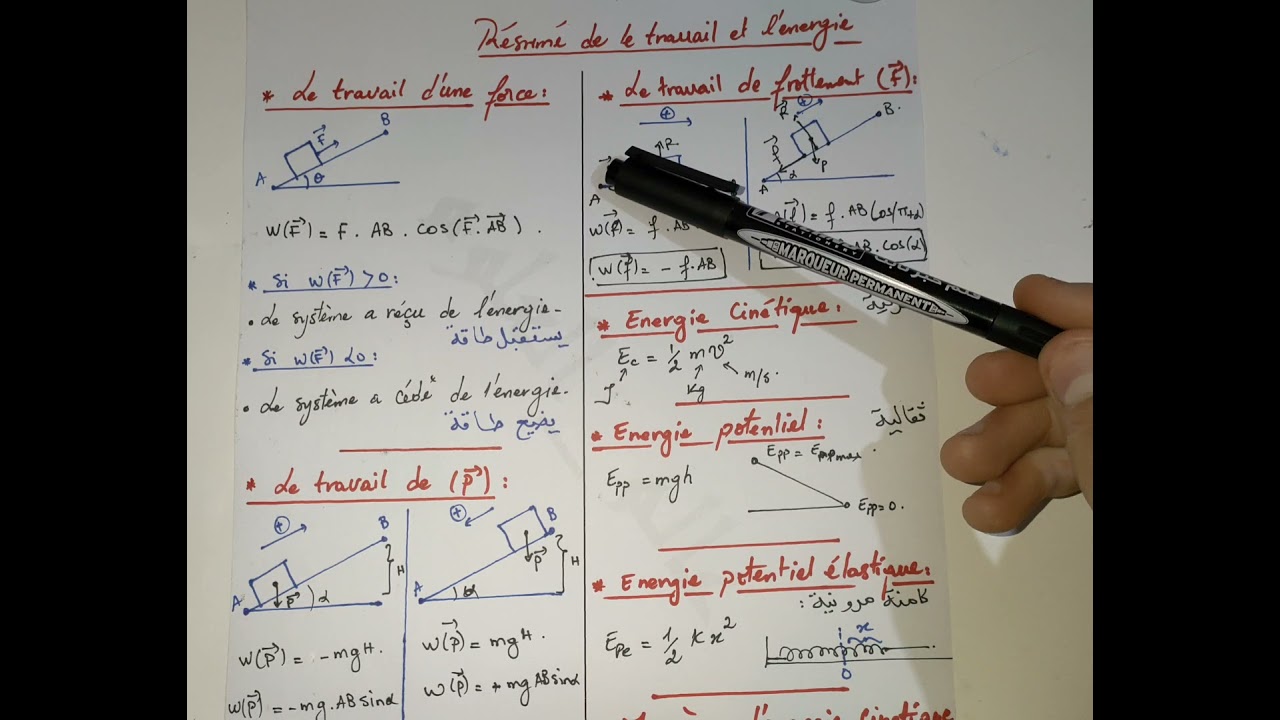 Résumé de le travail et l'énergie
* Le travail d'une force:
B
F
A
θ
W(F) = F . AB . cos(F. AB) .
* Si W(F) > 0:
• Le système a réçu de l'énergie.
يستقبل طاقة
* Si W(F) < 0:
• Le système a cédé de l'énergie.
يضيع طاقة
* Le travail de (P):
+
B
H
A
P
α
W(P) = - mgH.
W(P) = - mg. AB sinα
+
B
P
H
A
α
W(P) = mgH.
W(P) = + mg AB sinα
* Le travail de frottement (f):
+
R
A
W(f) = f. AB
W(f) = - f. AB
R
+
B.
f
P
A
α
= f. AB cos(π+α)
AB. cos(α)
MARQUEUR PERMANENTE
* Energie Cinétique:
Ec = 1/2 m v²
J
Kg
m/s.
* Energie potentiel:
ثقالية
Epp = Eppmax.
Epp = mgh
Epp = 0.
* Energie potentiel élastique:
كامنة مرونية:
Epe = 1/2 K x²
x
0
l'énergie cinétique